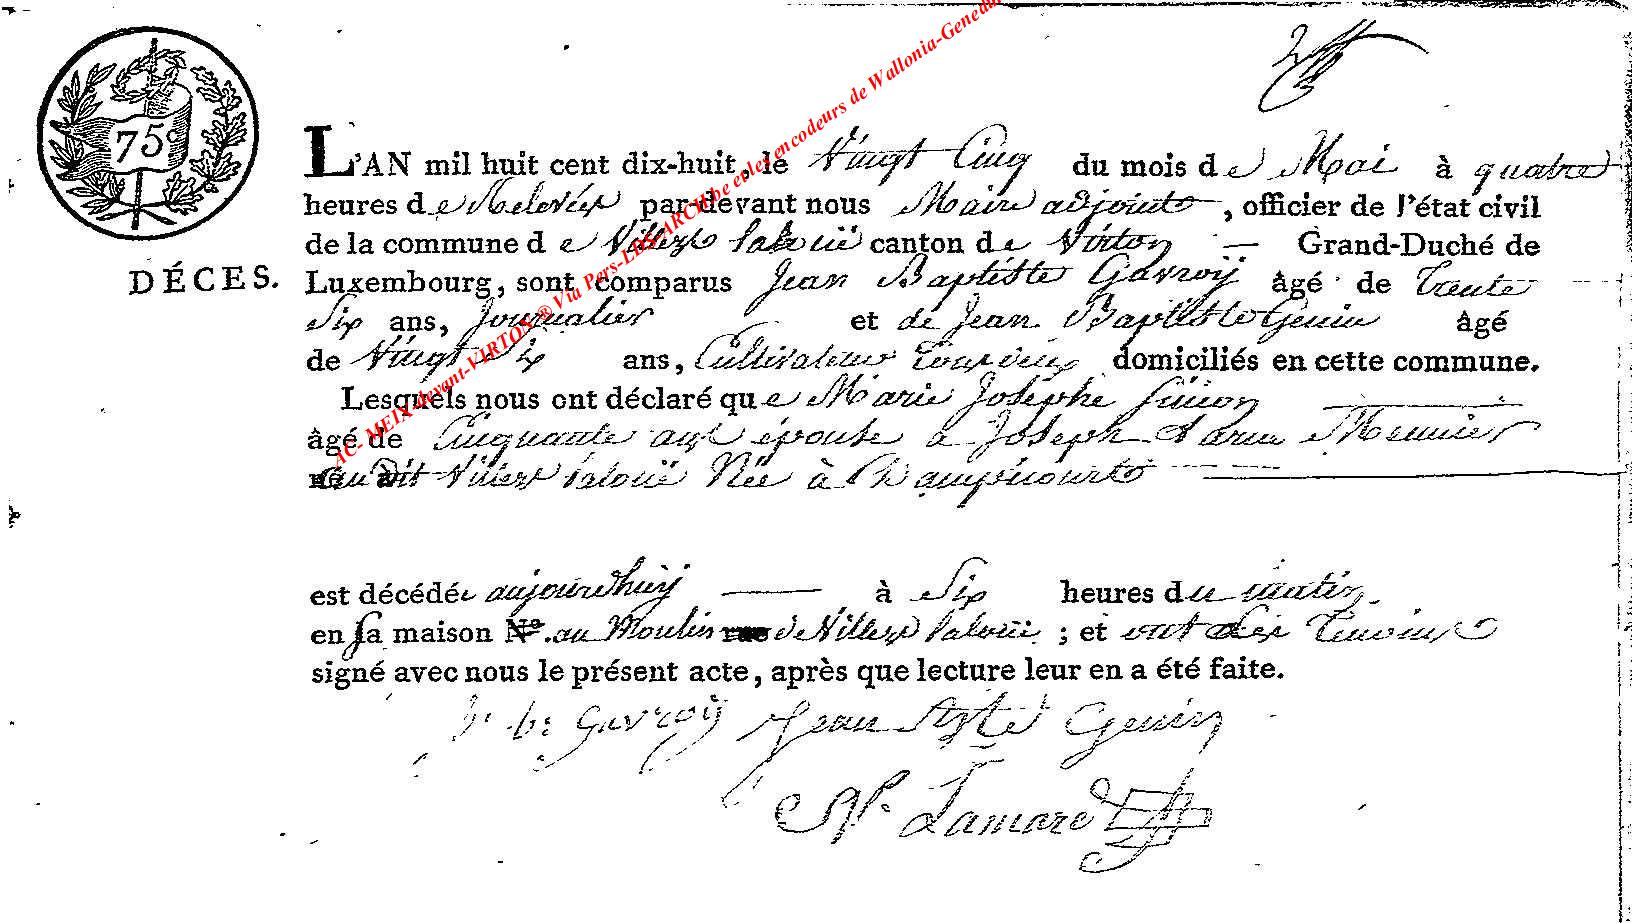 75c
L'AN mil huit cent dix-huit, le Vingt Cinq du mois de Mai à quatre
heures de Relevée par devant nous Maire adjoint, officier de l'état civil
de la commune de Villers laloüe canton de Virton — Grand-Duché de
DÉCES.
Luxembourg, sont comparus Jean Baptiste Gavroÿ âgé de Trente
Six ans, Journalier et de Jean Baptiste Genin âgé
de Vingt Six ans, Cultivateur Tous deux domiciliés en cette commune.
Lesquels nous ont déclaré que Marie Josephe
âgé de Cinquante ans épouse a Joseph Meunier
au dit Villers laloüe Née à
est décédée aujourdhuÿ — à Six heures du matin
en sa maison N°. au Moulin rue de Villers laloüe ; et ont Les Temoins
signé avec nous le présent acte, après que lecture leur en a été faite.
Gavroÿ Jean Bste Genin
Lamare
AC. MEIX-devant-VIRTON ® Via Pers-LUX-ARCH.be et les encodeurs de Wallonia-Genedu